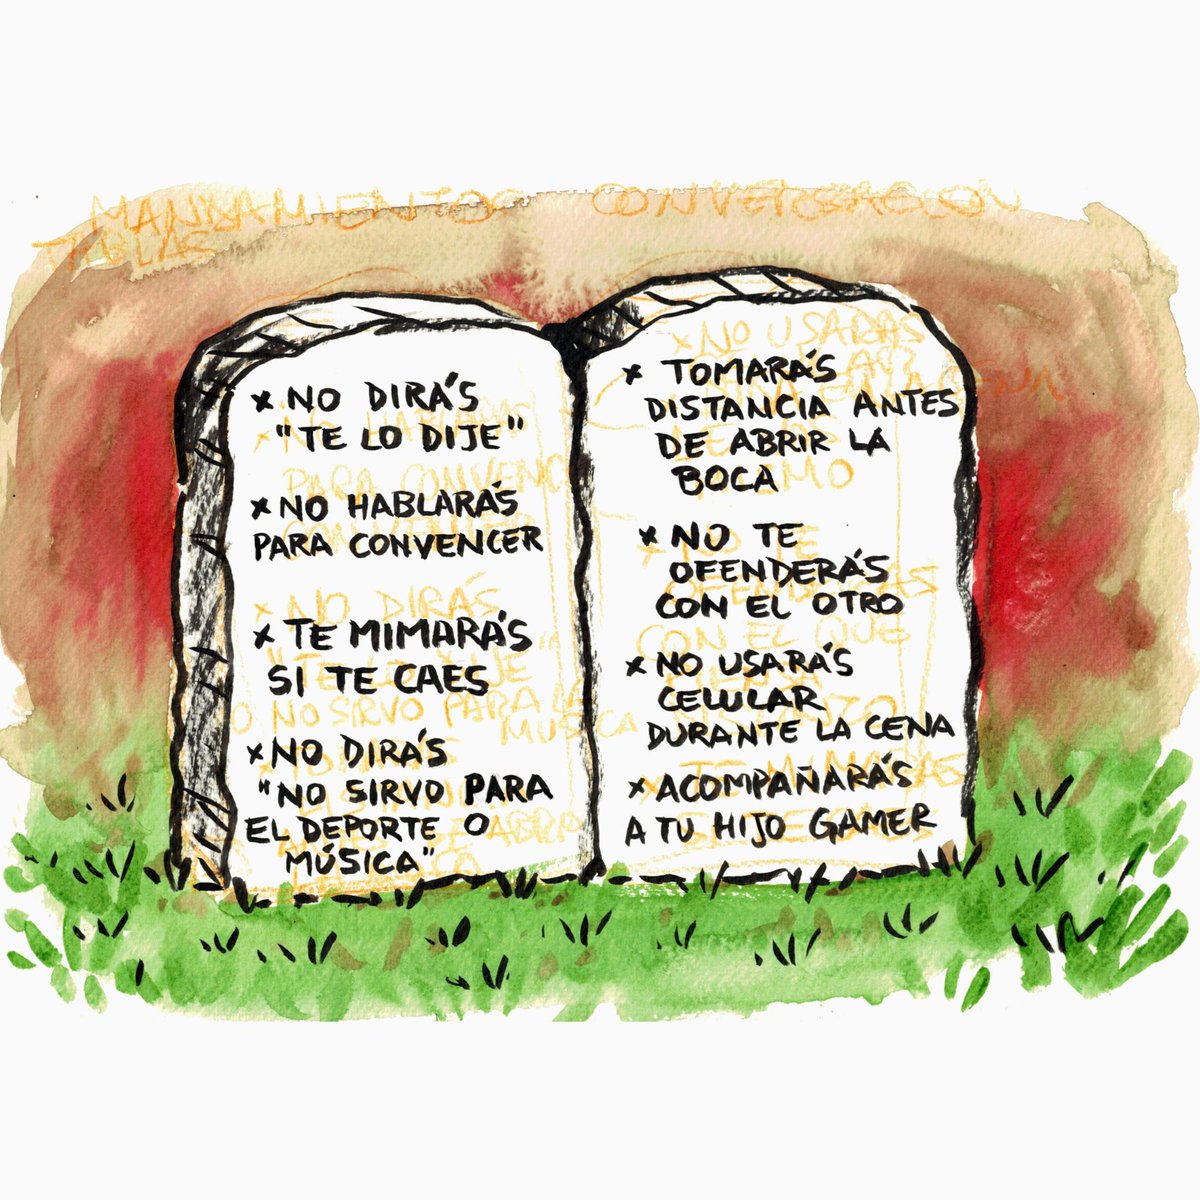 MANDAMIENTOS CONVERSACION
TABLAS
× NO DIRÁS
"TE LO DIJE"
× NO HABLARÁS
PARA CONVENCER
× TE MIMARÁS
SI TE CAES
× NO DIRÁS
"NO SIRVO PARA
EL DEPORTE O
MÚSICA"
× NO USARAS
× TOMARÁS
DISTANCIA ANTES
DE ABRIR LA
BOCA
× NO TE
OFENDERÁS
CON EL OTRO
× NO USARÁS
CELULAR
DURANTE LA CENA
× ACOMPAÑARÁS
A TU HIJO GAMER